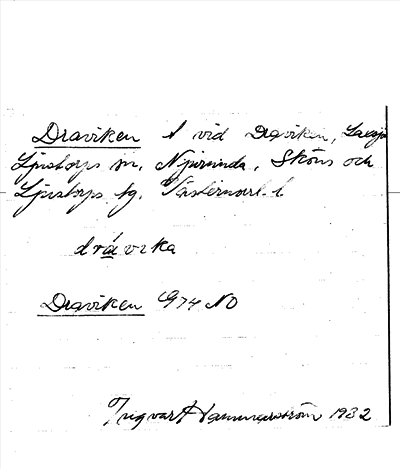 Draviken t vid Draviken,
Ljustorps sn, Njurunda, Sköns och
Ljustorps tg, Västernorrl. l
dravika
Draviken G74 NO
Ingvar Hammarström 1932